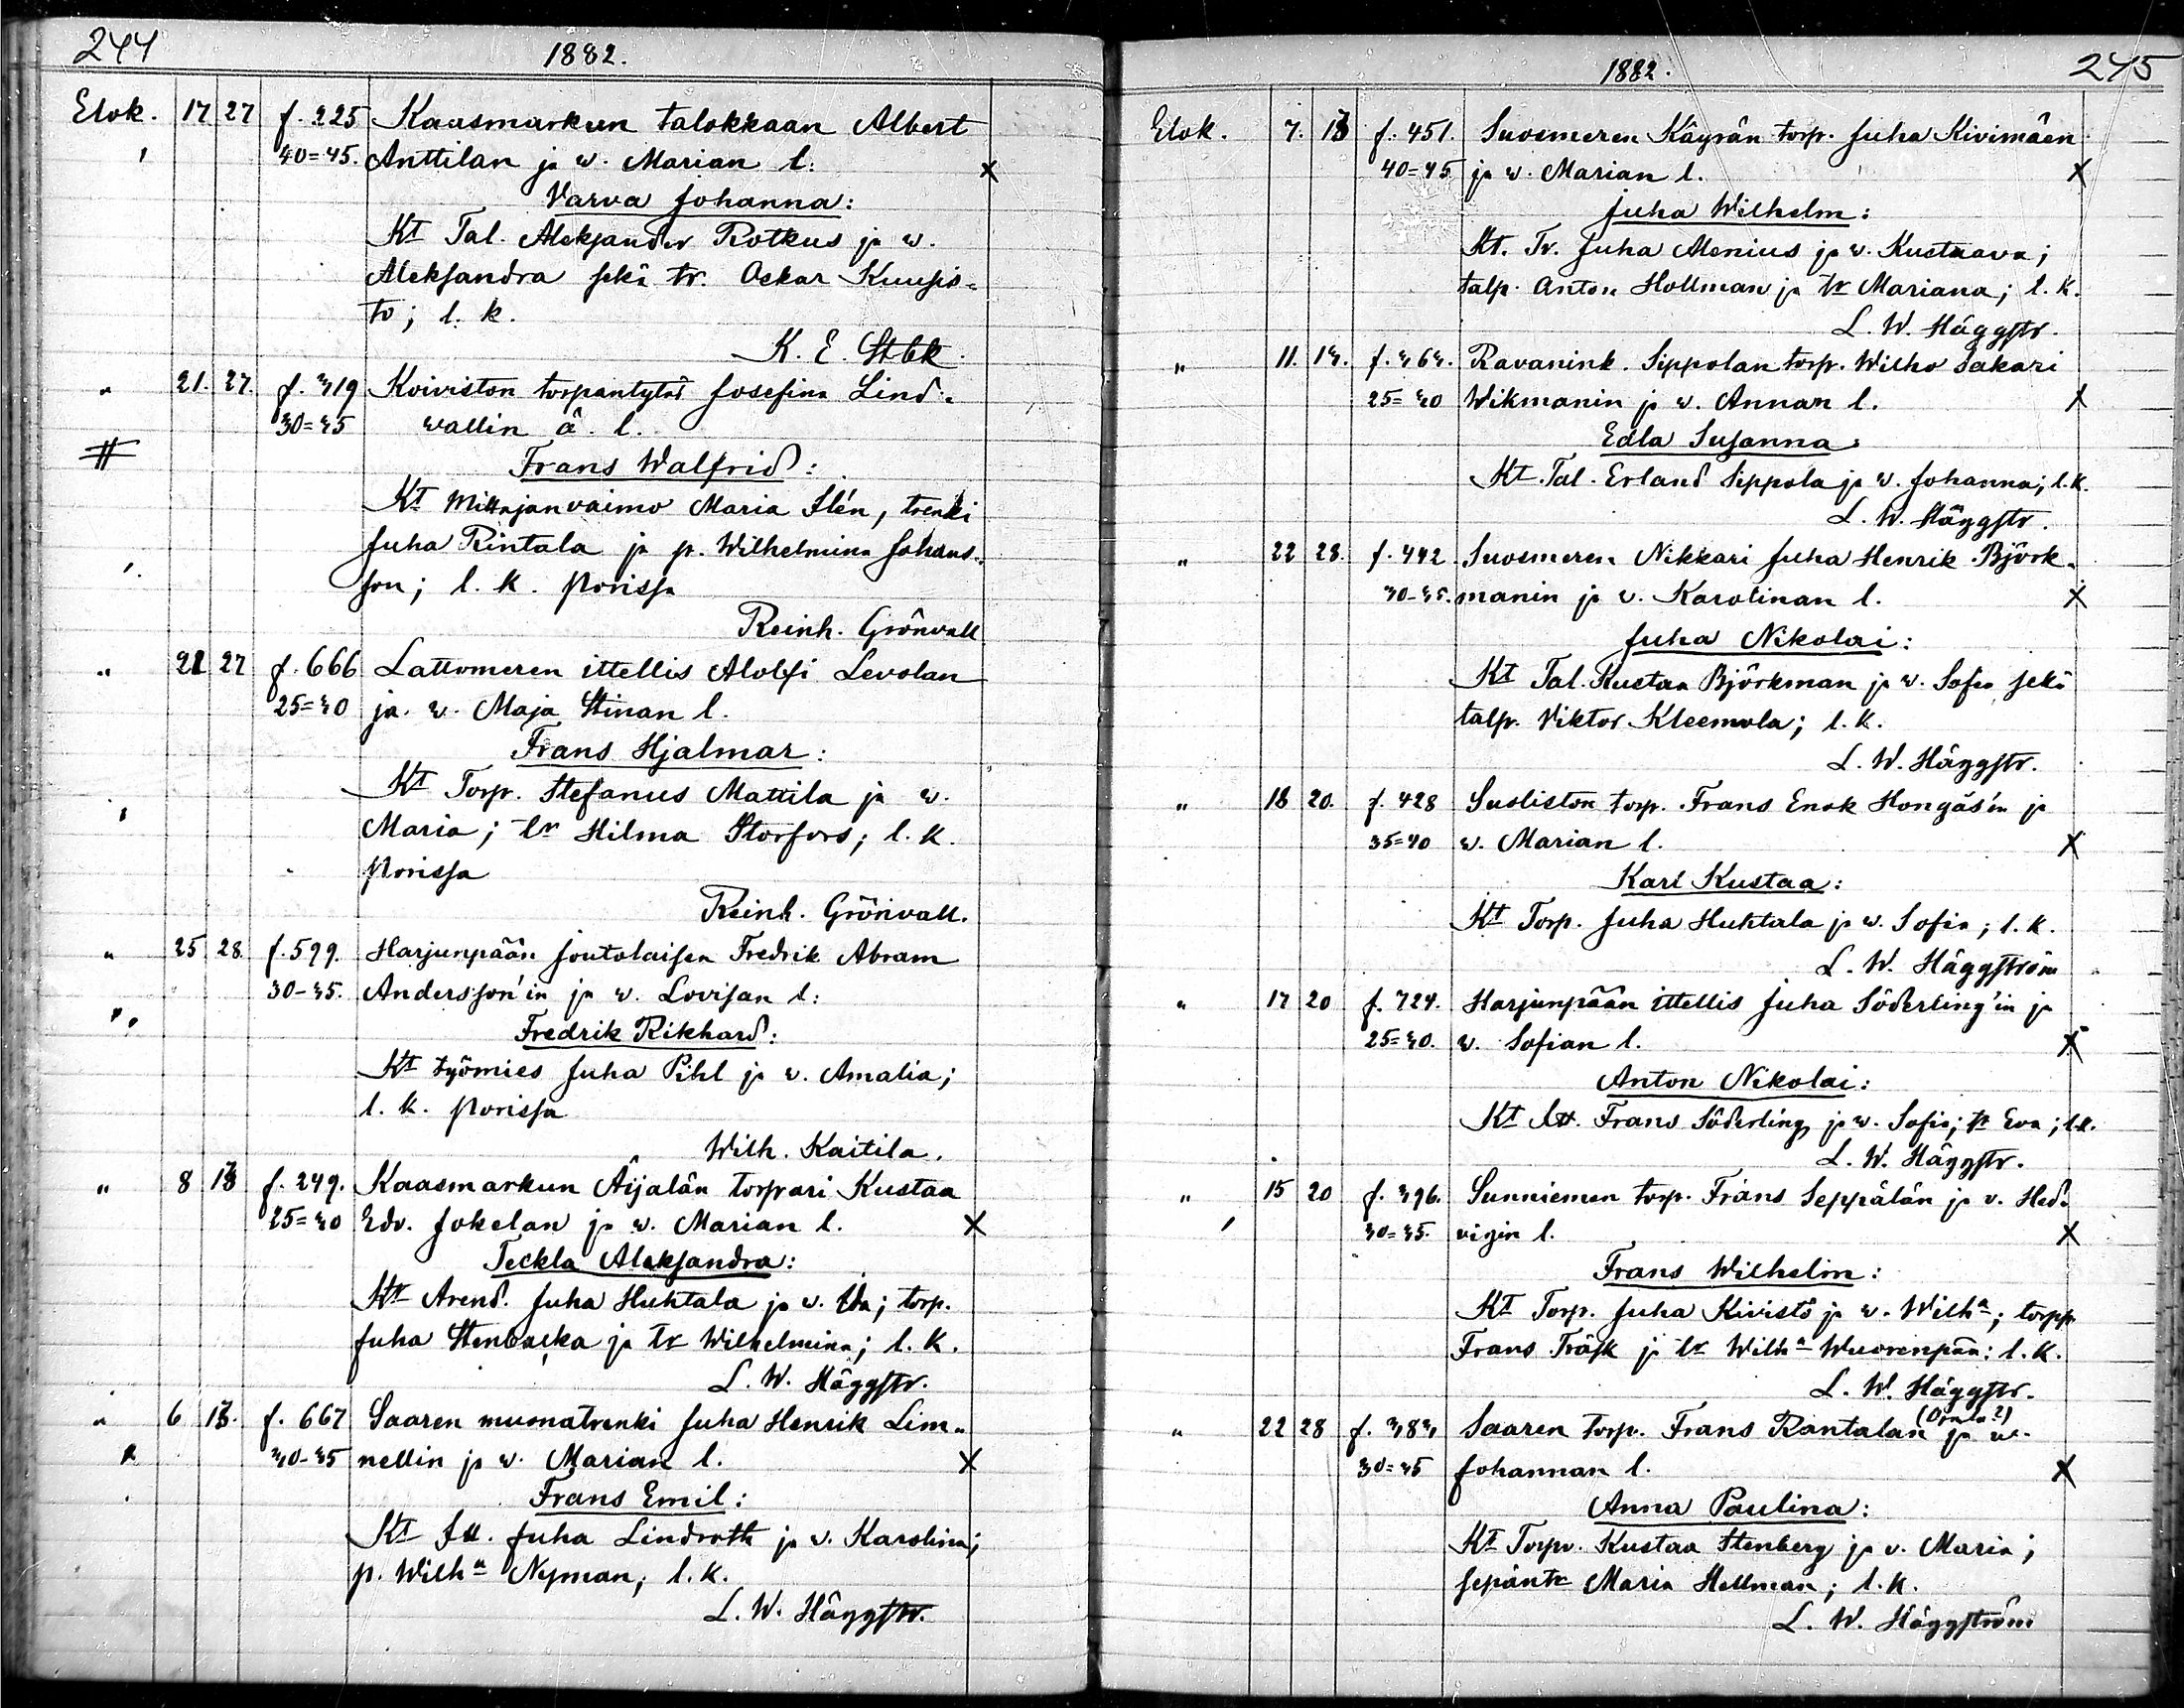 244
1882.
Elok. 17 27 f. 225 Kaasmarkun talokkaan Albert
40=45. Anttilan ja w. Marian l. X
Varva Johanna:
Kt Tal. Aleksander Rotkus ja w.
Aleksandra sekä tr. Oskar Kuusis=
to; l. k.
K. E. Stbk.
" 21. 27. f. 319 Koiviston torpantytär Josefina Lind=
30=35 wallin ä. l.
Frans Walfrid:
Kt Mittajanvaimo Maria Slén, trenki
Juha Rintala ja p. Wilhelmina Johans=
son; l. k. Porissa
Reinh. Grönvall
" 21 27 f. 666 Lattomeren ittellis Adolfi Levolan
25=30 ja. w. Maja Stinan l.
Frans Hjalmar:
Kt Torp. Stefanus Mattila ja w.
Maria; tr Hilma Storfors; l. k.
Porissa
Reinh. Grönvall.
" 25 28. f. 599. Harjunpään joutolaisen Fredrik Abram
30-35. Andersson'in ja w. Lovisan l:
Fredrik Rikhard:
Kt työmies Juha Pihl ja w. Amalia;
l. k. Porissa
Wilh. Kaitila.
" 8 13 f. 249. Kaasmarkun Äijälän torpari Kustaa
25=30 Edv. Jokelan ja w. Marian l. X
Teckla Aleksandra:
Kt Arend. Juha Huhtala ja w. Ida; torp.
Juha Stenbacka ja tr Wilhelmina; l. k.
L. W. Häggstr.
" 6 13. f. 667 Saaren muonatrenki Juha Henrik Lim=
30-35 nellin ja w. Marian l. X
Frans Emil:
Kt Itt. Juha Lindroth ja w. Karolina;
p. Wilhª Nyman; l. k.
L. W. Häggstr.
1882.
245
Elok. 7. 13 f. 451. Suosmeren Käyrän torp. Juha Kivimäen
40=45 ja w. Marian l. X
Juha Wilhelm:
Kt. Tr. Juha Alenius ja w. Kustaava;
talp. Anton Hollman ja tr Mariana; l. k.
L. W. Häggstr.
" 11. 13. f. 363. Ravanink. Sippolan torp. Wilho Sakari
25=30 Wikmanin ja w. Annan l. X
Edla Susanna:
Kt. Tal. Erland Sippola ja w. Johanna; l. k.
L. W. Häggstr.
" 22 28. f. 442. Suosmeren Nikkari Juha Henrik Björk=
30-35. manin ja v. Karolinan l. X
Juha Nikolai:
Kt Tal. Kustaa Björkman ja w. Sofia sekä
talp. Viktor Kleemola; l. k.
L. W. Häggstr.
" 18 20. f. 428 Susliston torp. Frans Enok Hongäs'in ja
35=40 w. Marian l. X
Karl Kustaa:
Kt Torp. Juha Huhtala ja w. Sofia; l. k.
L. W. Häggström
" 17 20 f. 724. Harjunpään ittellis Juha Söderling'in ja
25=30. w. Sofian l. X
Anton Nikolai:
Kt Itt. Frans Söderling ja w. Sofia; tr Eva; l. k.
L. W. Häggstr.
" 15 20 f. 396. Sunniemen torp. Frans Seppälän ja v. Hed=
30=35. vigin l. X
Frans Wilhelm:
Kt Torp. Juha Kivistö ja w. Wilhª; torpp.
Frans Träsk ja tr Wilhª Wuorenpää: l. k.
L. W. Häggstr.
" 22 28 f. 383 Saaren torp. Frans Rantalan ja w.
30=35 Johannan l. X
Anna Paulina:
Kt Torpp. Kustaa Stenberg ja v. Maria;
sepäntr Maria Hellman; l. k.
L. W. Häggström